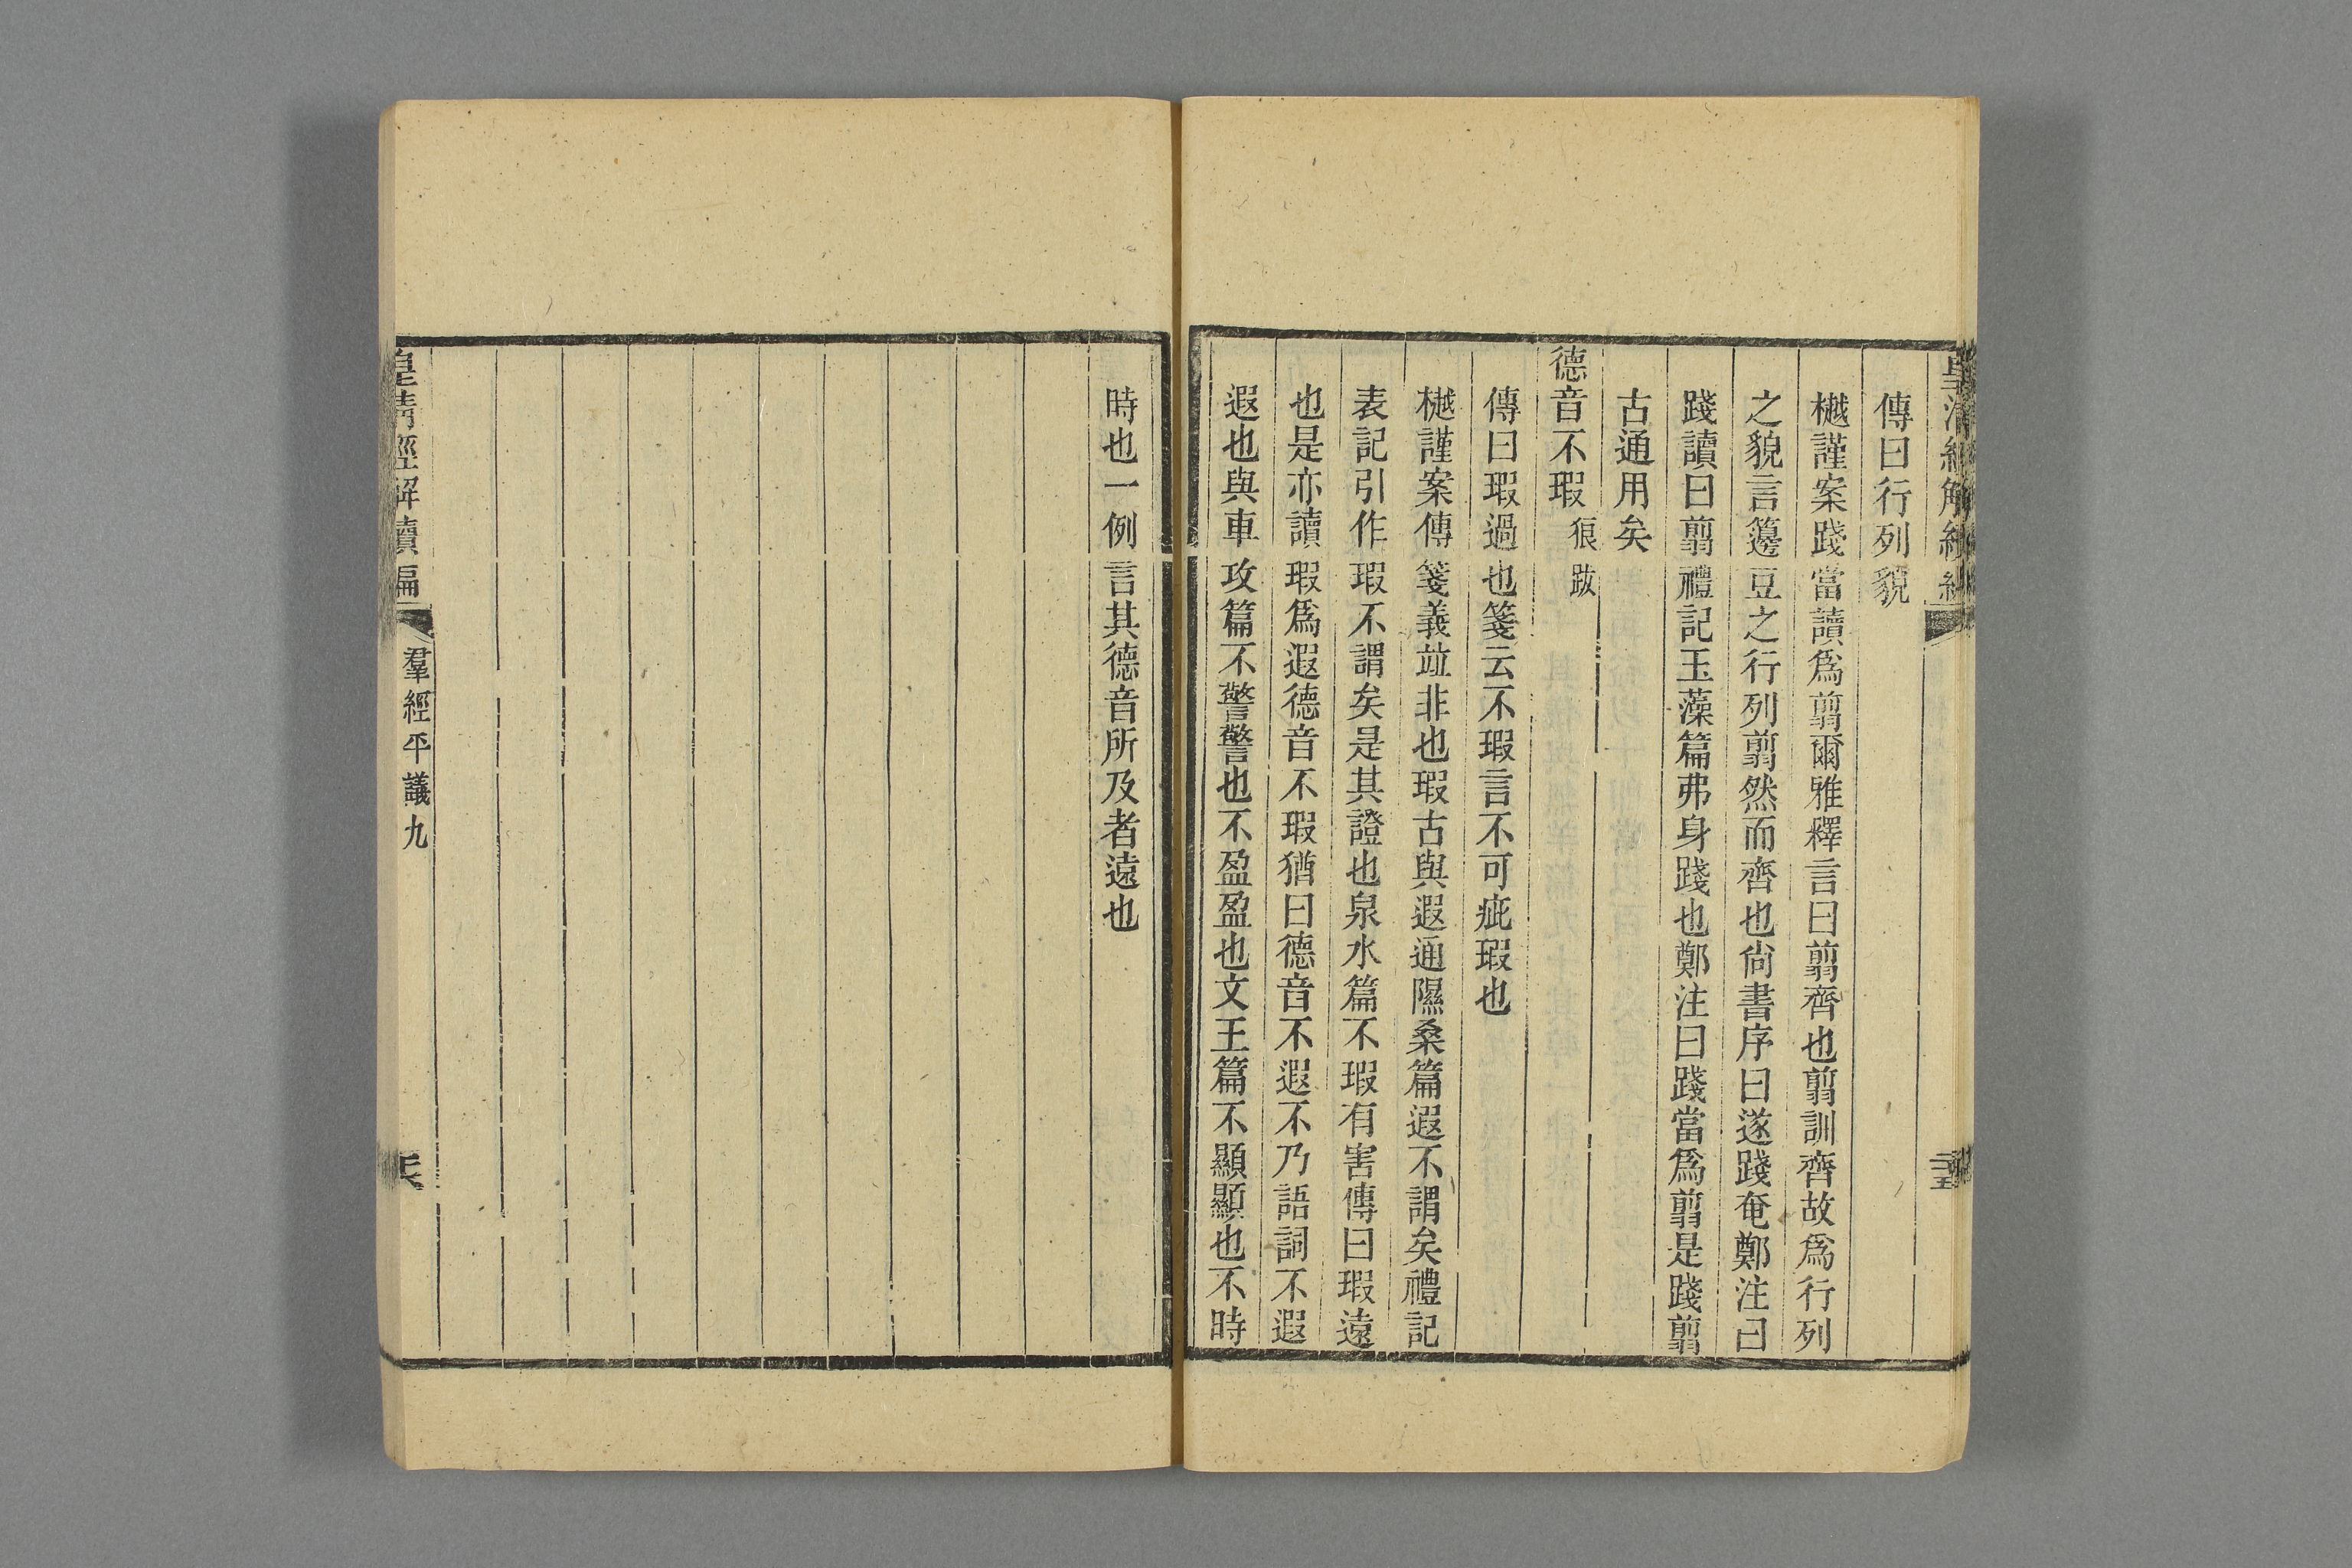 傳曰行列貌
樾謹案踐當讀爲翦爾雅釋言曰翦齊也翦訓齊故爲行列
之貌言籩豆之行列翦然而齊也尙書序曰遂踐奄鄭注曰
踐讀曰翦禮記玉藻篇弗身踐也鄭注曰踐當爲翦是踐翦
古通用矣
德音不瑕 狼跋
傳曰瑕過也箋云不瑕言不可疵瑕也
樾謹案傳箋義竝非也瑕古與遐通隰桑篇遐不謂矣禮記
表記引作瑕不謂矣是其證也泉水篇不瑕有害傳曰瑕遠
也是亦讀瑕爲遐德音不瑕猶曰德音不遐不乃語詞不遐
遐也與車攻篇不警警也不盈盈也文王篇不顯顯也不時
時也一例言其德音所及者遠也
皇清經解續編
羣經平議九